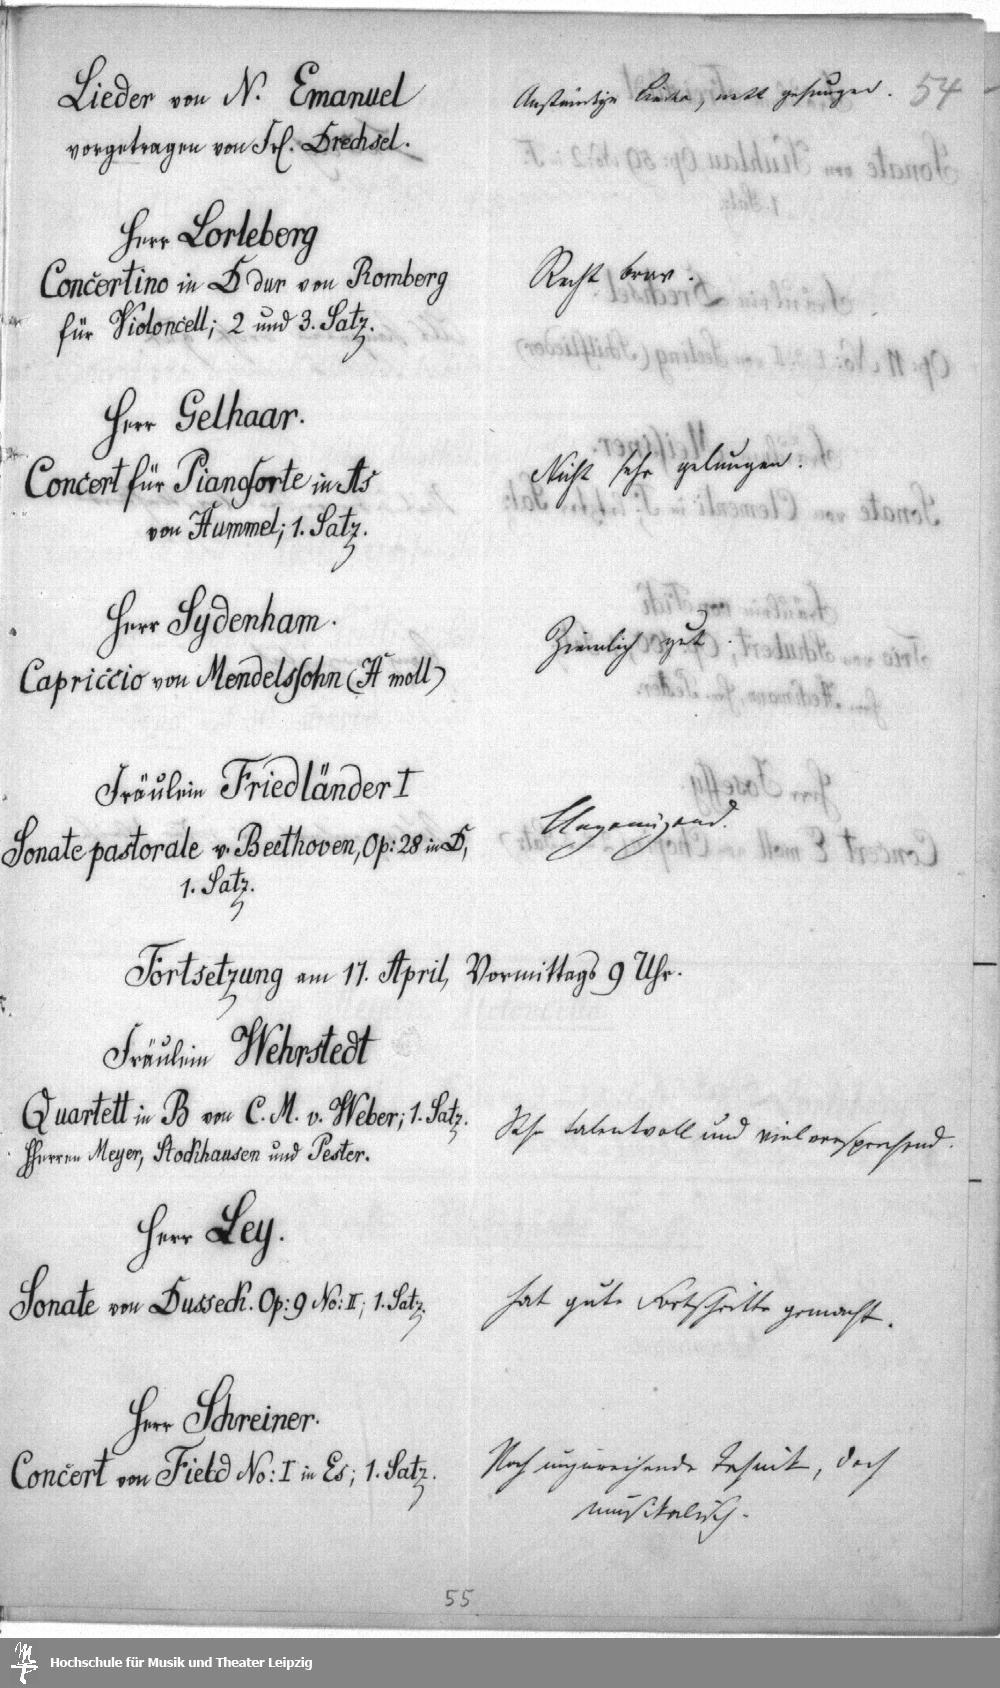 Lieder von N. Emanuel
vorgetragen von Frl. Drechsel.
Anständige Lieder, nett gesungen.
54
Herr Lorleberg
Concertino in D dur von Romberg
für Violoncell; 2 und 3. Satz.
Recht brav.
Herr Gelhaar.
Concert für Pianoforte in As
von Hummel; 1. Satz.
Nicht sehr gelungen.
Herr Sydenham.
Capriccio von Mendelssohn (H moll)
Ziemlich gut.
Fräulein Friedländer I
Sonate pastorale v. Beethoven, Op: 28 in D,
1. Satz.
Ungenügend.
Fortsetzung am 17. April, Vormittags 9 Uhr.
Fräulein Wehrstedt
Quartett in B von C. M. v. Weber; 1. Satz.
Herren Meyer, Stockhausen und Pester.
Sehr talentvoll und vielversprechend.
Herr Ley.
Sonate von Dusseck. Op: 9 No: II; 1. Satz.
hat gute Fortschritte gemacht.
Herr Schreiner.
Concert von Field No: I in Es; 1. Satz.
Noch unzureichende Technik, doch
musikalisch.
55
Hochschule für Musik und Theater Leipzig